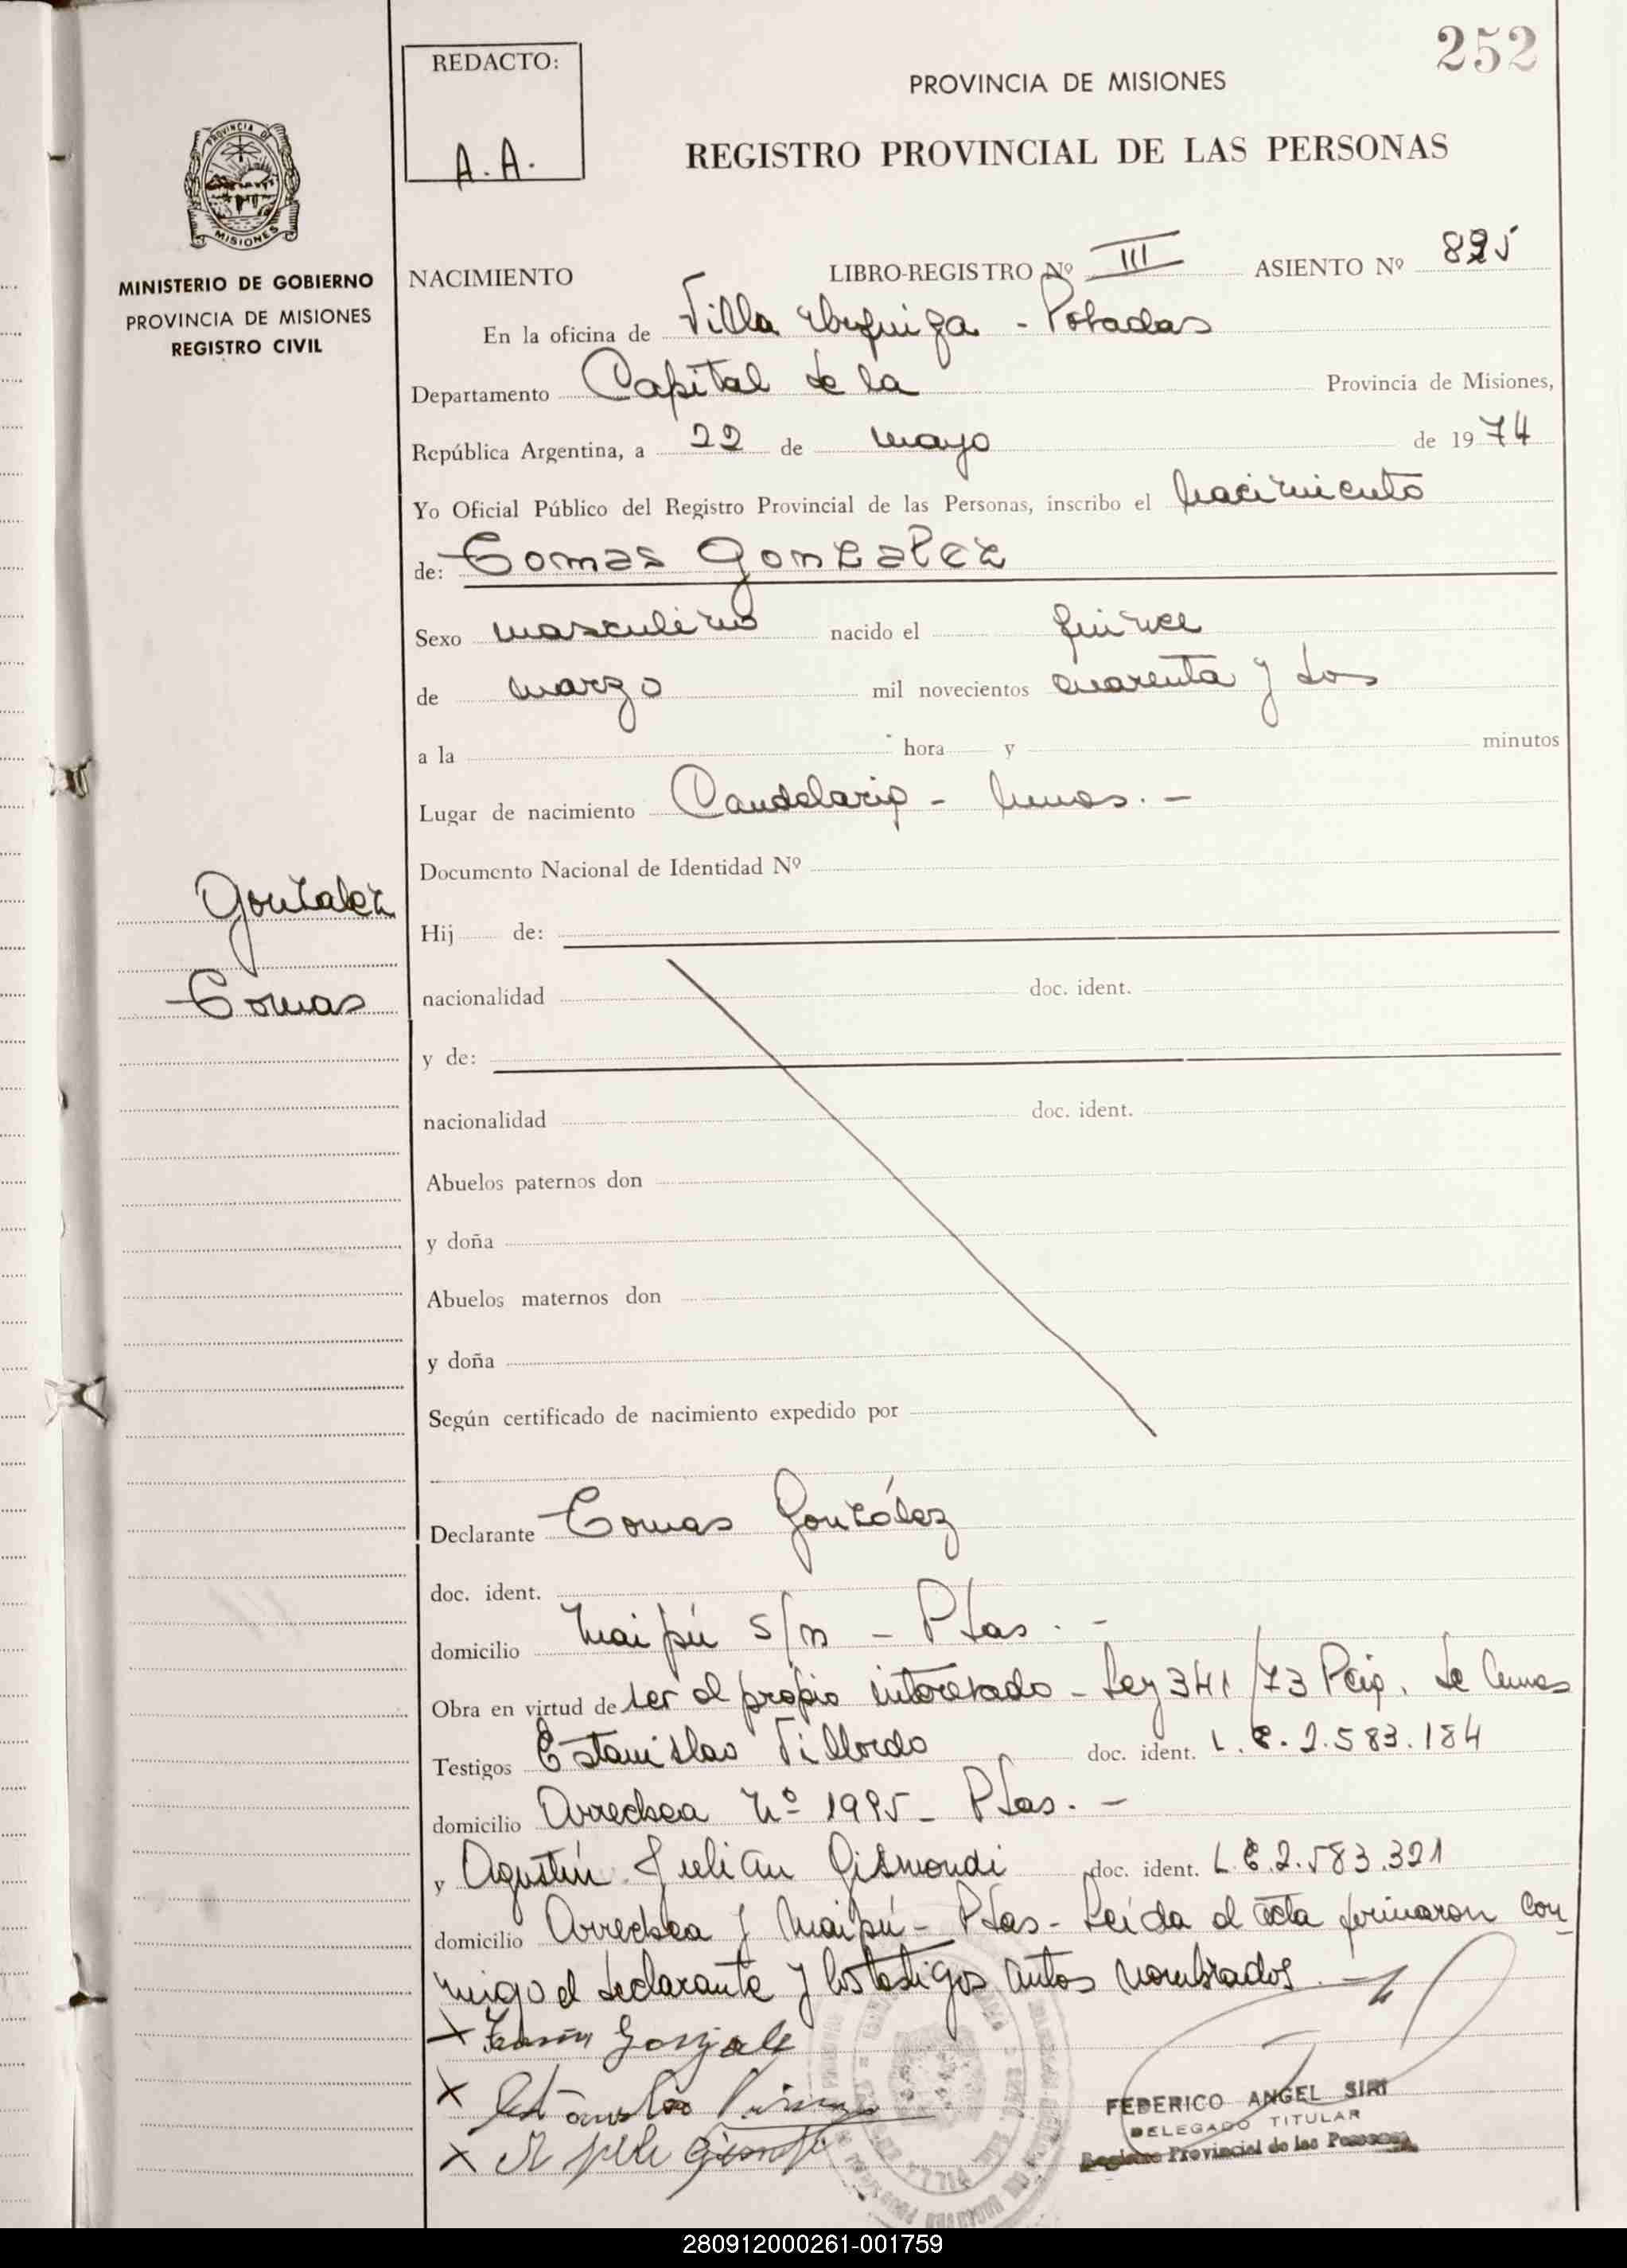 252
REDACTO:
A.A.
PROVINCIA DE MISIONES
REGISTRO PROVINCIAL DE LAS PERSONAS
PROVINCIA DE
MISIONES
MINISTERIO DE GOBIERNO
PROVINCIA DE MISIONES
REGISTRO CIVIL
NACIMIENTO LIBRO-REGISTRO Nº III ASIENTO Nº 825
En la oficina de Villa Urquiza - Posadas
Departamento Capital de la Provincia de Misiones,
República Argentina, a 22 de mayo de 1974
Yo Oficial Público del Registro Provincial de las Personas, inscribo el nacimiento
de: Tomas Gonzalez
Sexo masculino nacido el quince
de marzo mil novecientos cuarenta y dos
a la hora y minutos
Lugar de nacimiento Candelaria - Mnes. -
Documento Nacional de Identidad Nº
Gonzalez
Hij de:
Tomas
nacionalidad doc. ident.
y de:
nacionalidad doc. ident.
Abuelos paternos don
y doña
Abuelos maternos don
y doña
Según certificado de nacimiento expedido por
Declarante Tomas González
doc. ident.
domicilio Maipú s/n - Pdas. -
Obra en virtud de ser el propio interesado - Ley 341/73 Pcia. de Mnes
Testigos Estanislao doc. ident. L.E. 2.583.184
domicilio Arrechea Nº 1995 - Pdas. -
y Agustín Julian Gismondi doc. ident. L.E. 2.583.321
domicilio Arrechea y Maipú - Pdas - Leída el acta firmaron con-
migo el declarante y los testigos antes nombrados. -
FEDERICO ANGEL SIRI
DELEGADO TITULAR
Registro Provincial de las Personas
280912000261-001759